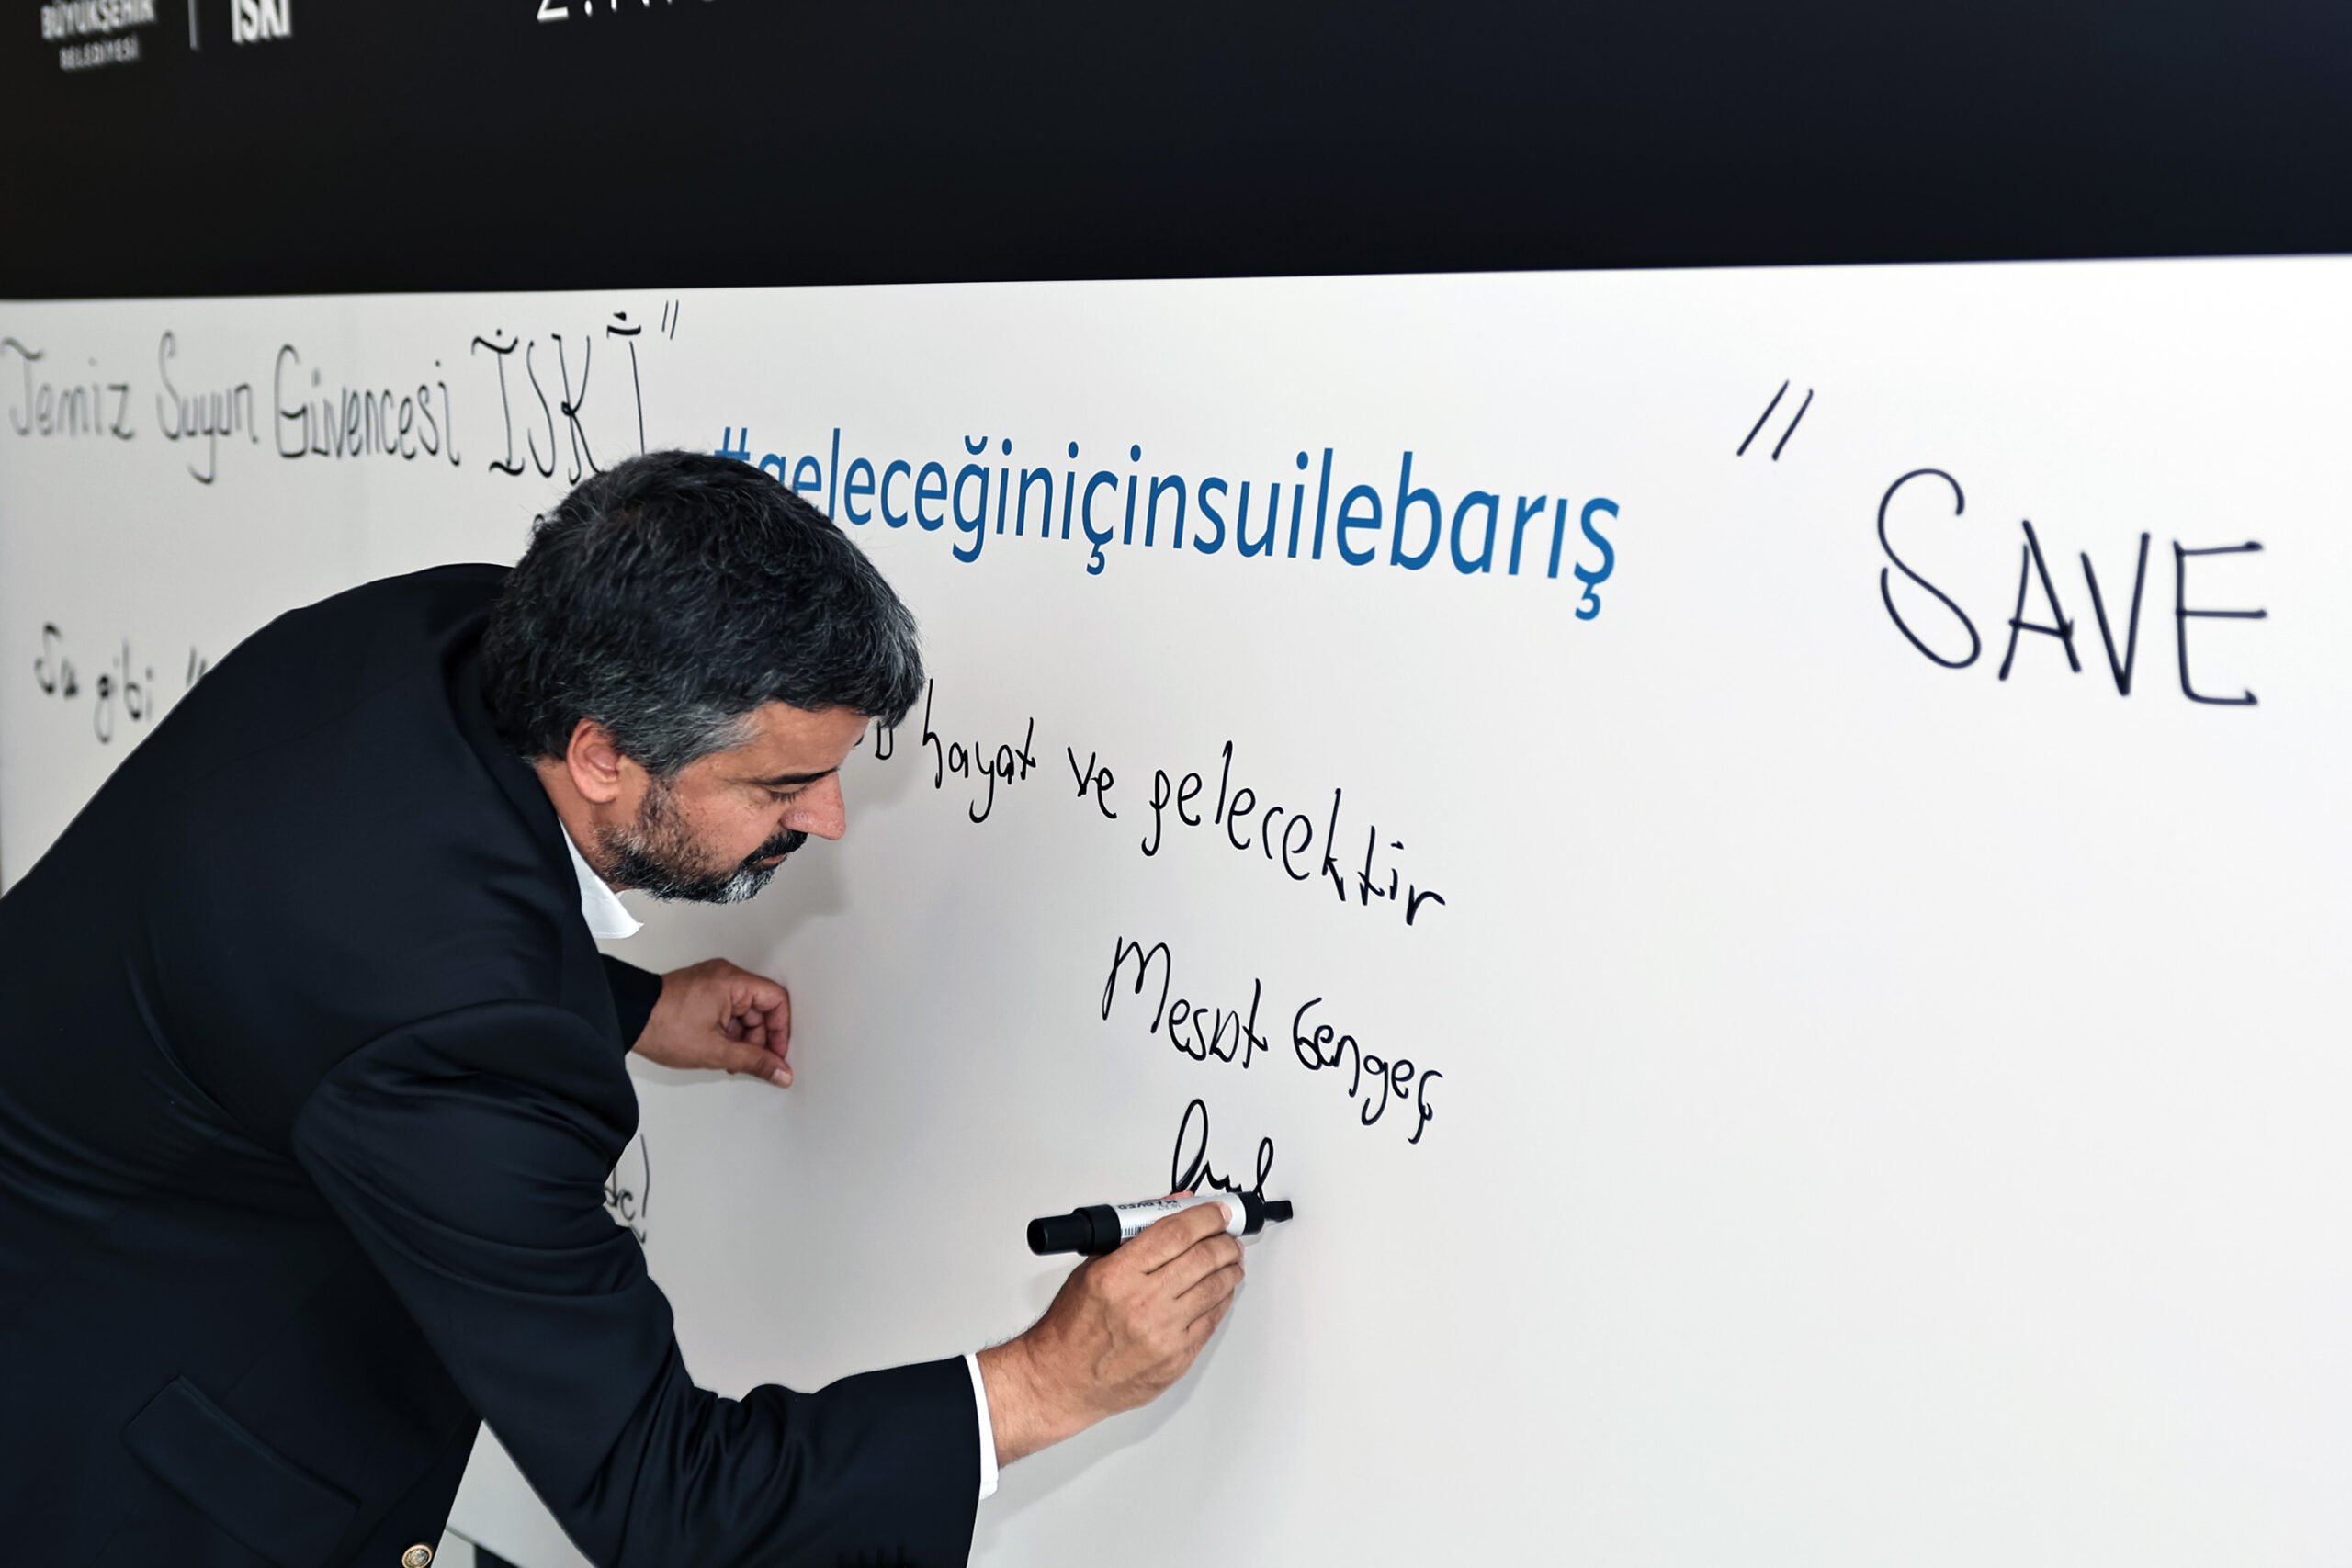 BÜYÜKŞEHİR
BELEDİYESİ
İSKİ
Temiz Suyun Güvencesi İSKİ"
#geleceğiniçinsuilebarış
" SAVE
Su gibi "
hayat ve gelecektir
Mesut Gengeç